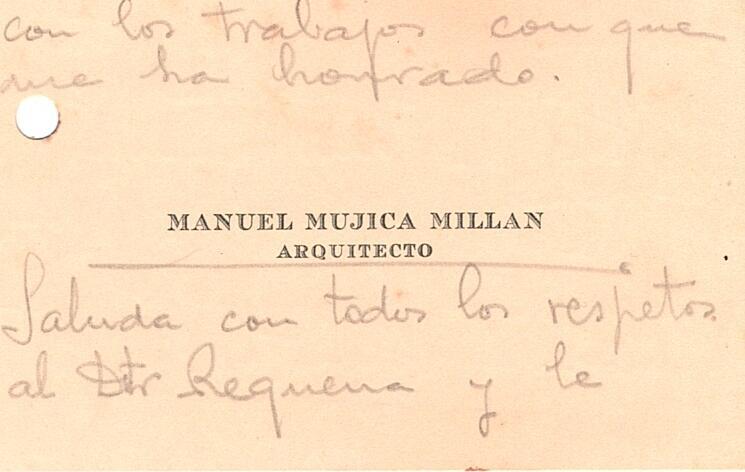 con los trabajos con que
me ha honrado.
MANUEL MUJICA MILLAN
ARQUITECTO
Saluda con todos los respetos
al Dtr Requena y le